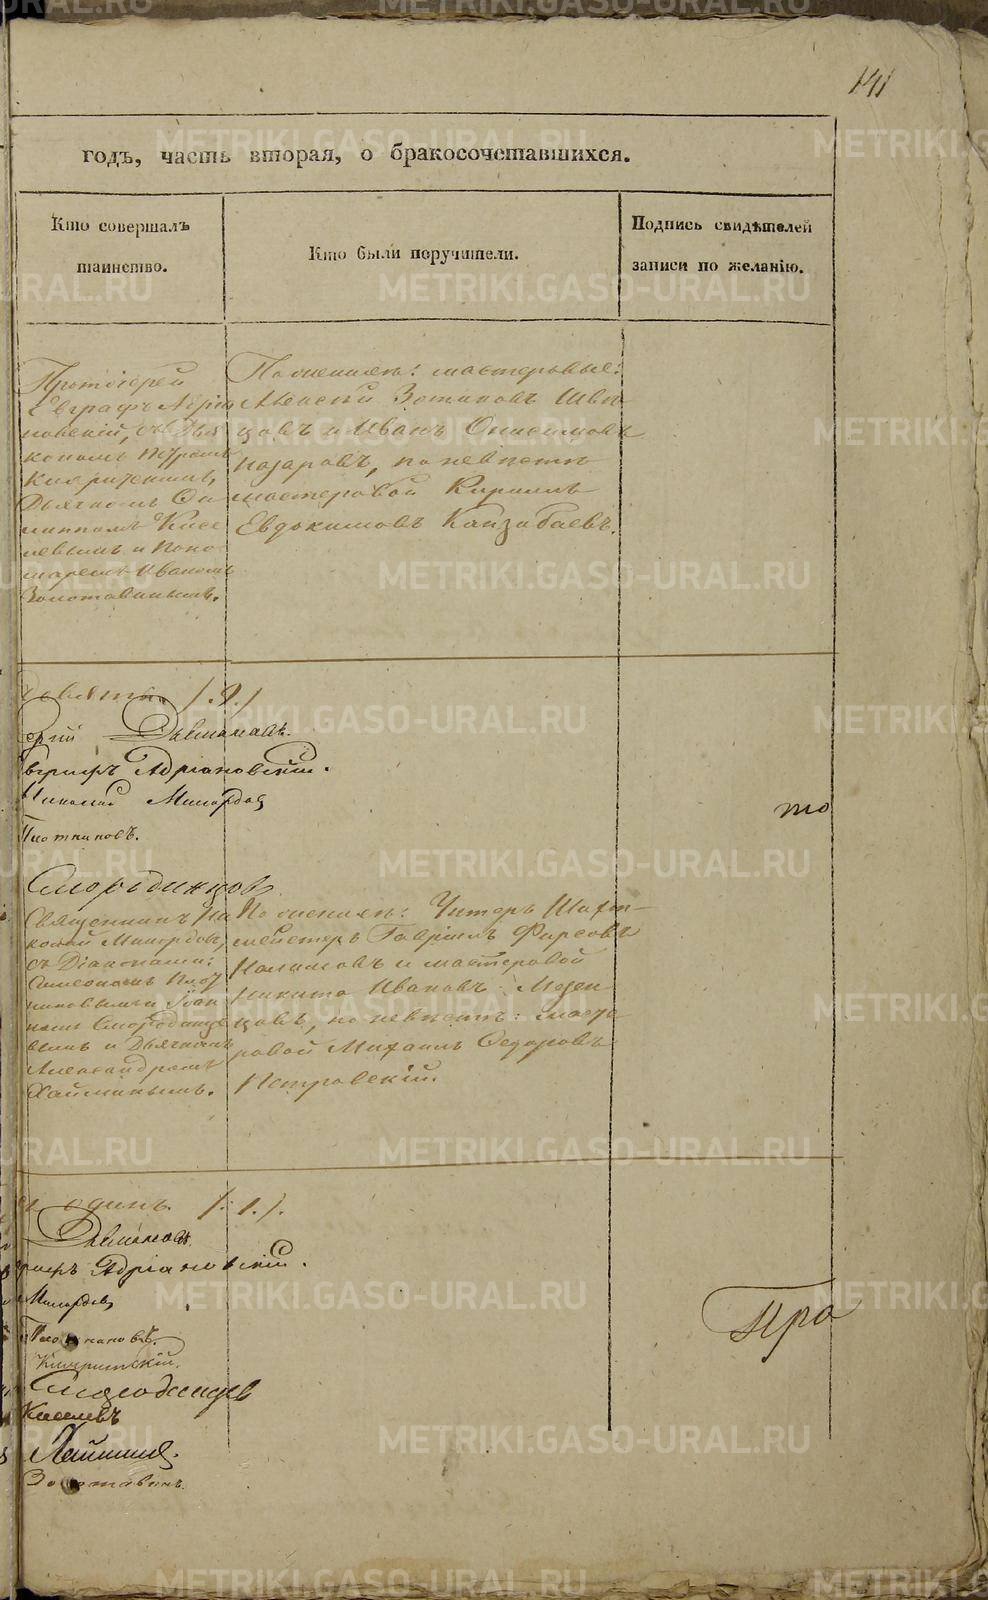 141
годъ, часть вторая, о бракосочетавшихся.
Кто совершалъ
таинство.
Кто были поручители.
Подпись свидѣтелей
записи по желанію.
Протоіерей
Евграфъ Адріа
новскій, съ Діа
кономъ Петромъ
Дьячкомъ
Кисе
левымъ и Поно
маремъ Иваномъ
Золотавинымъ.
По женихѣ: мастеровые:
Алексѣй Зотиковъ Швե
цовъ и Иванъ Онисимовъ
Назаровъ, по невѣстѣ
мастеровой Кирилъ
Евдокимовъ Канзабаевъ.
/.9./
Евграфъ Адріановскій.
Николай
Плотниковъ.
Смородинцовъ
то
Священникъ Ни
колай
съ Діаконами:
Симеономъ Плот
никовымъ и Іоан
номъ Смородинцо
вымъ и Дьячкомъ
Александромъ
Хайминымъ.
По женихѣ: Унтеръ Шихт-
мейстеръ Гавріилъ Фирсовъ
и мастеровой
Никита Ивановъ
цовъ, по невѣстѣ: масте
ровой Михаилъ Федоровъ
Петровскій.
одинъ. /.1./.
графъ Адріановскій.
Плотниковъ.
Смородинцовъ
Киселевъ
Хайминъ.
Золотавинъ.
Про
METRIKI.GASO-URAL.RU